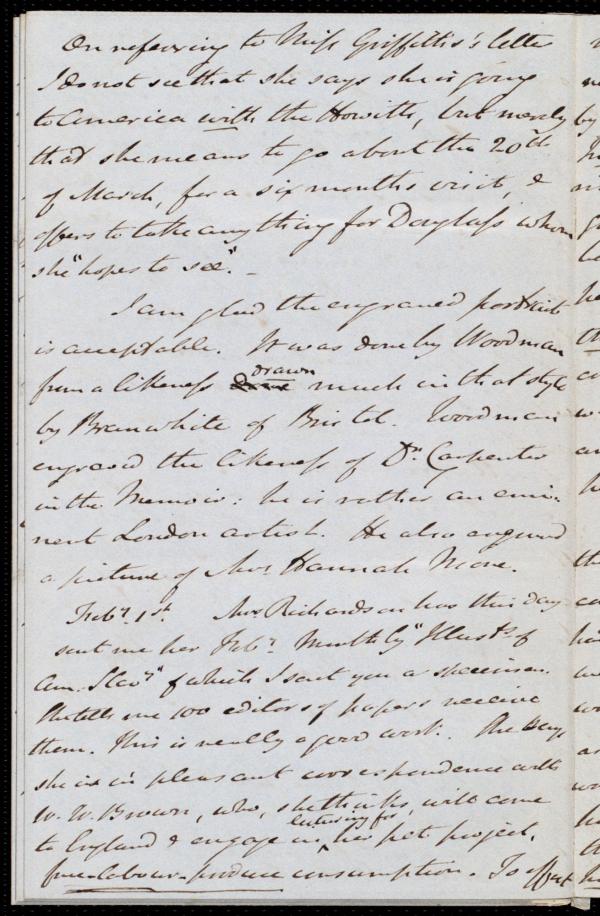 On referring to Miss Griffitts's letter
I do not see that she says she is going
to America with the Howitts, but merely
that she means to go about the 20th
of March, for a six months visit, &
offers to take anything for Douglass whom
she "hopes to see". -
I am glad the engraved portrait
is acceptable. It was done by Woodman
from a likeness drawn much in that style
by Branwhite of Bristol. Woodman
engraved the likeness of Dr. Carpenter
in the Memoir: he is rather an emi-
nent London artist. He also engraved
a picture of Mrs. Hannah More.
Feby. 1st. Mrs. Richardson has this day
sent me her Feby. Monthly "Illusts. of
Am. Slavy" of which I sent you a specimen.
She tells me 100 editors of papers receive
them. This is really a good work. She says
she is in pleasant correspondence with
W. W. Brown, who, she thinks, will come
to England & engage in
lecturing for
her pet project,
free-labour-produce consumption. To effect